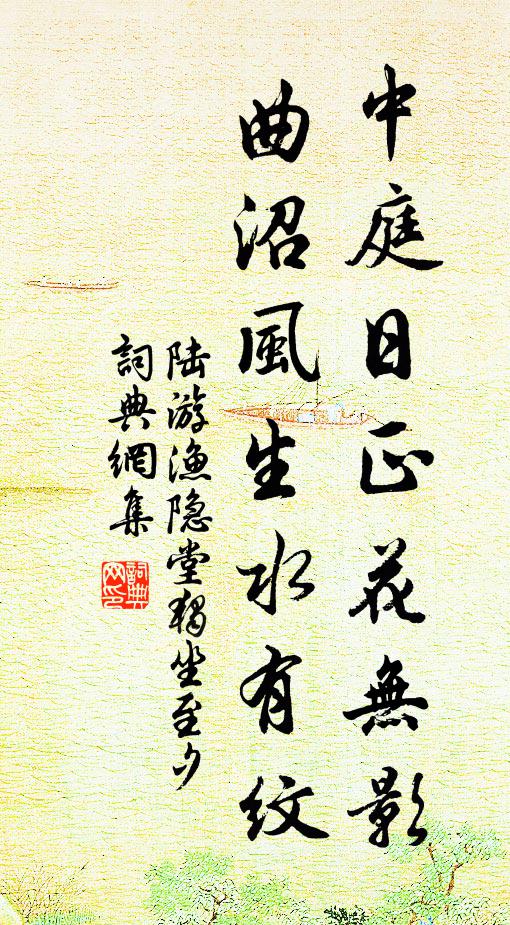 中庭日正花無影
曲沼風生水有紋
陆游漁隐堂獨坐至夕
詞典網集
詞典
网印